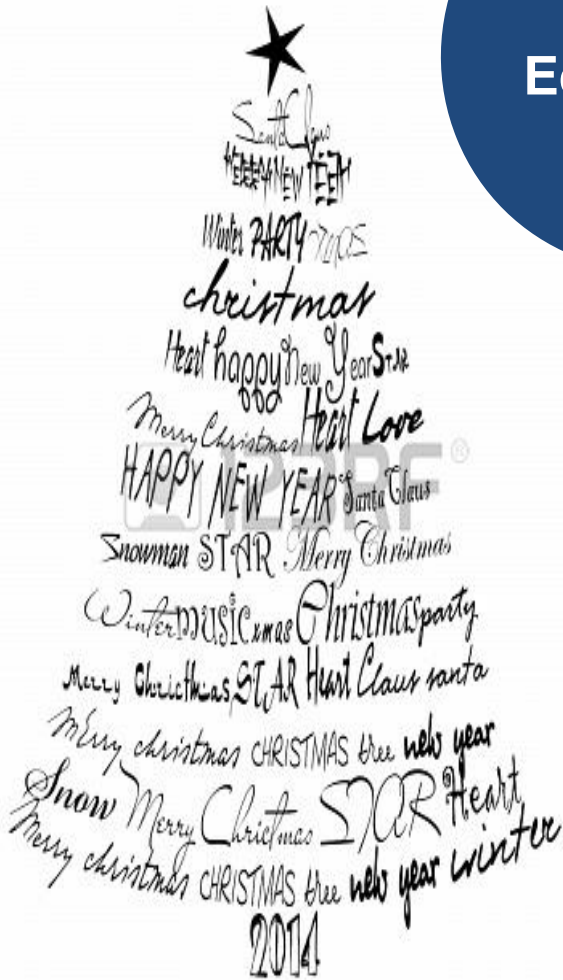 Santa Claus
NEW
Winter PARTY xmas
christmas
Heart happy New Year STAR
Merry Christmas Heart Love
HAPPY NEW YEAR Santa Claus
123RF®
Snowman STAR Merry Christmas
Winter music xmas Christmas party
Merry Christmas STAR Heart Claus santa
Merry christmas CHRISTMAS tree new year
Snow Merry Christmas STAR Heart
Merry christmas CHRISTMAS tree new year winter
2014